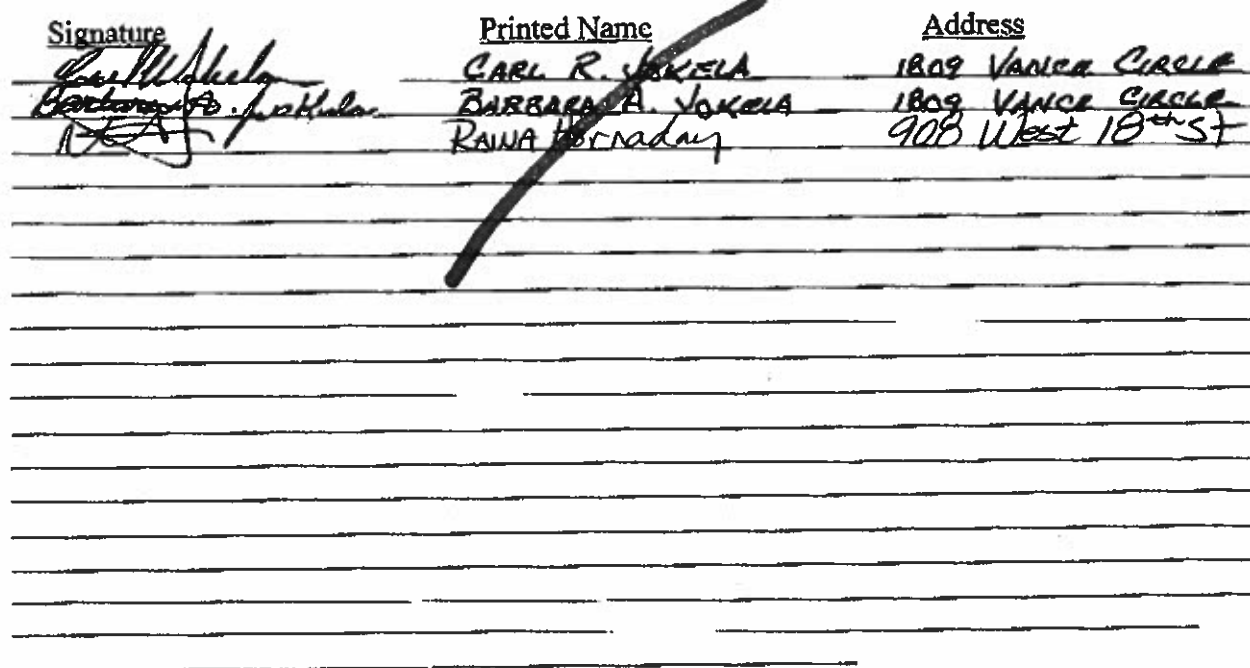 Signature Printed Name Address
CARL R. JOKELA 1809 VANCE CIRCLE
Barbara A. Jokela BARBARA A. JOKELA 1809 VANCE CIRCLE
RAINA Hornaday 908 West 18th St